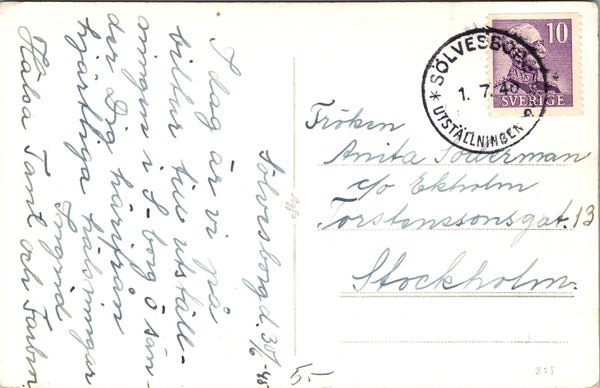 Sölvesborg d. 30/6 -48
I dag är vi på
biltur till utställ-
ningen i S-borg o sän-
der Dig härifrån
hjärtliga hälsningar
Ingrid
Hälsa Tant och Farbror
10
SVERIGE
* SÖLVESBORG *
1. 7. 48
UTSTÄLLNINGEN
Fröken
Anita Söderman
c/o Ekholm
Torstenssonsgat. 13
Stockholm.
5:-
255